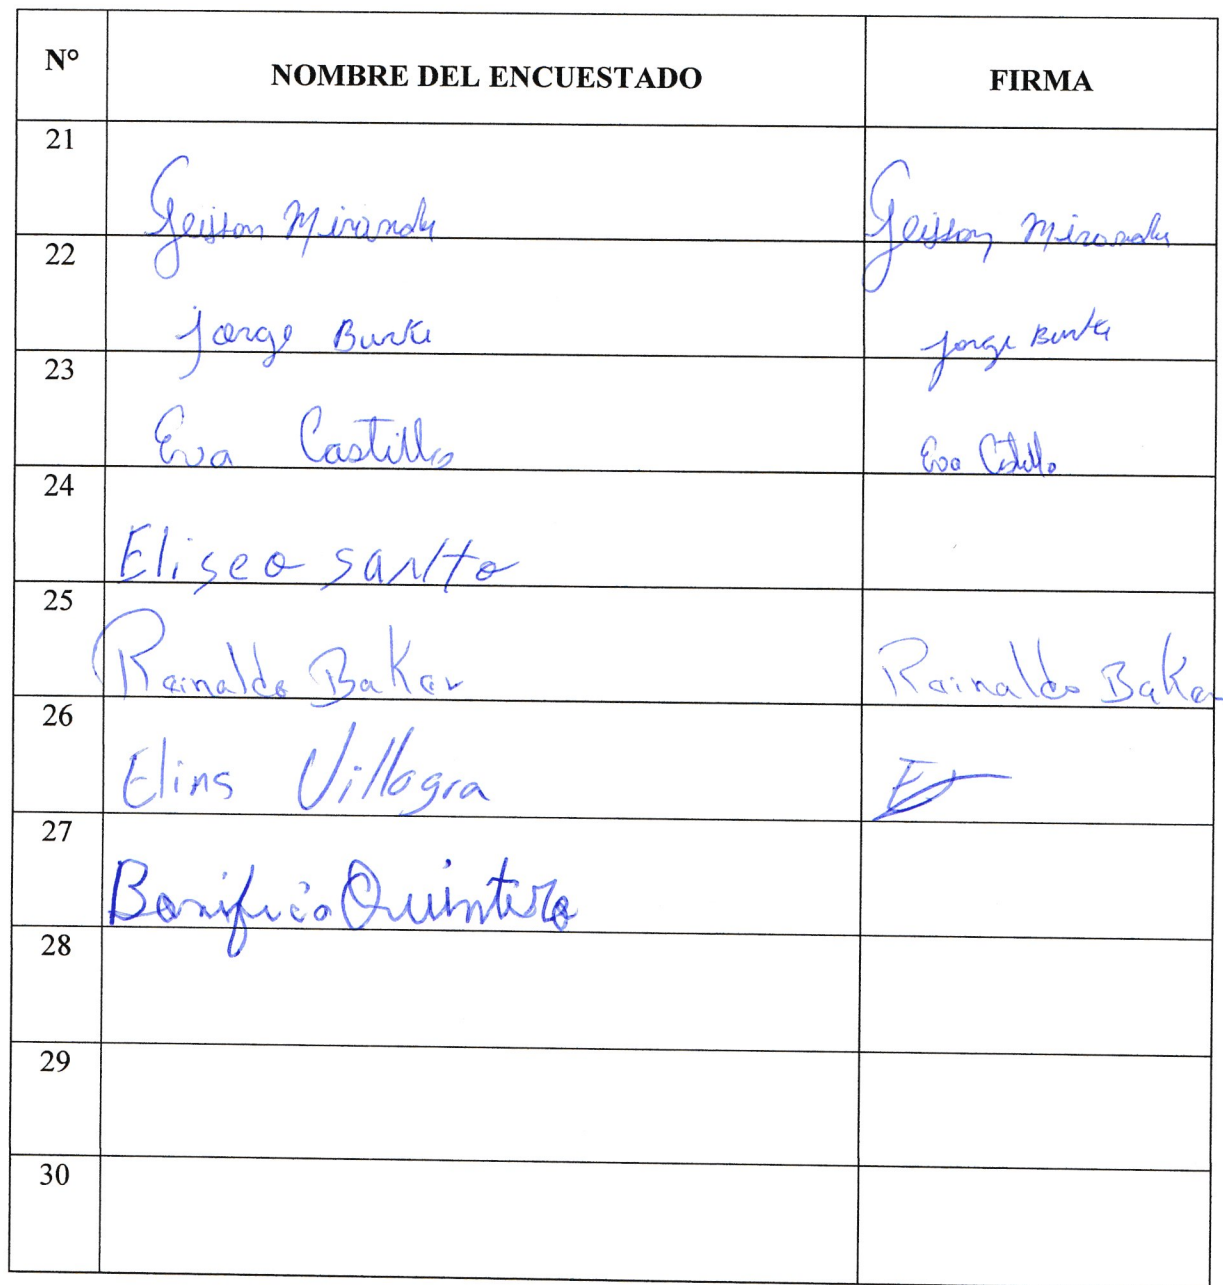 N° NOMBRE DEL ENCUESTADO FIRMA
21 Geisson Miranda Geisson Miranda
22 Jorge Burke Jorge Burke
23 Eva Castillo Eva Castillo
24 Eliseo santo
25 Rainaldo Baker Rainaldo Baker
26 Elins Villagra
27 Quintero
28
29
30